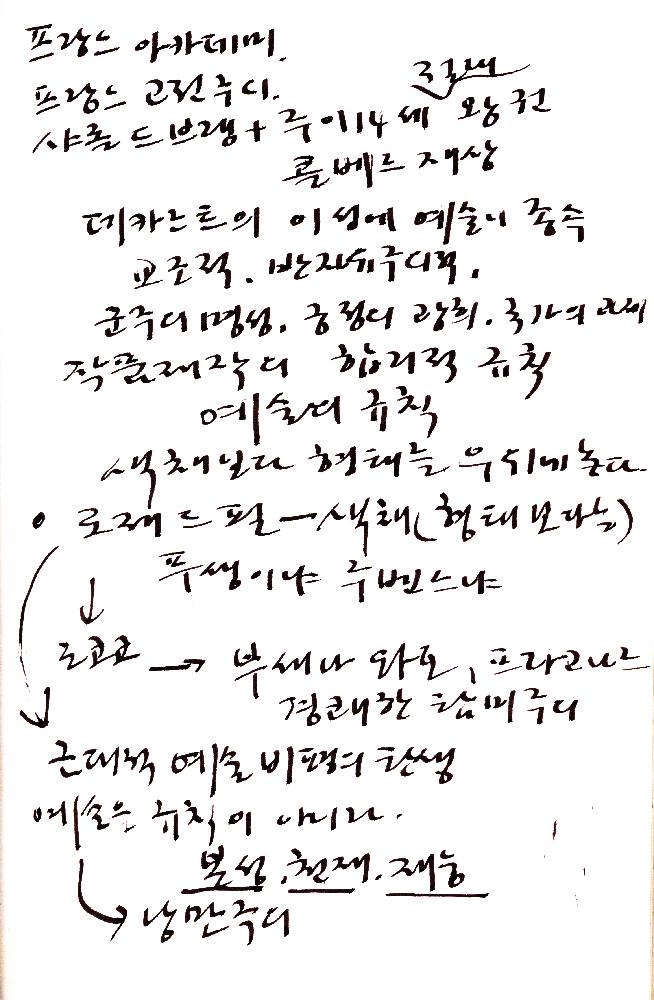 프랑스 아카데미.
프랑스 고전주의.
절대
샤를 드 브랭 + 루이14세 왕권
콜베르 재상
데카르트의 이성에 예술이 종속
교조적. 반자유주의적.
군주의 명성. 궁정의 광휘. 국가의 과제
작품제작의 합리적 규칙
예술의 규칙
색채보다 형태를 우위에 놓다.
• 로제 드 필 — 색채(형태보다는)
푸생이냐 루벤스냐
↓
로코코 → 부셰나 와토, 프라고나르
경쾌한 탐미주의
근대적 예술 비평의 탄생
예술은 규칙이 아니라.
본성. 천재. 재능
낭만주의